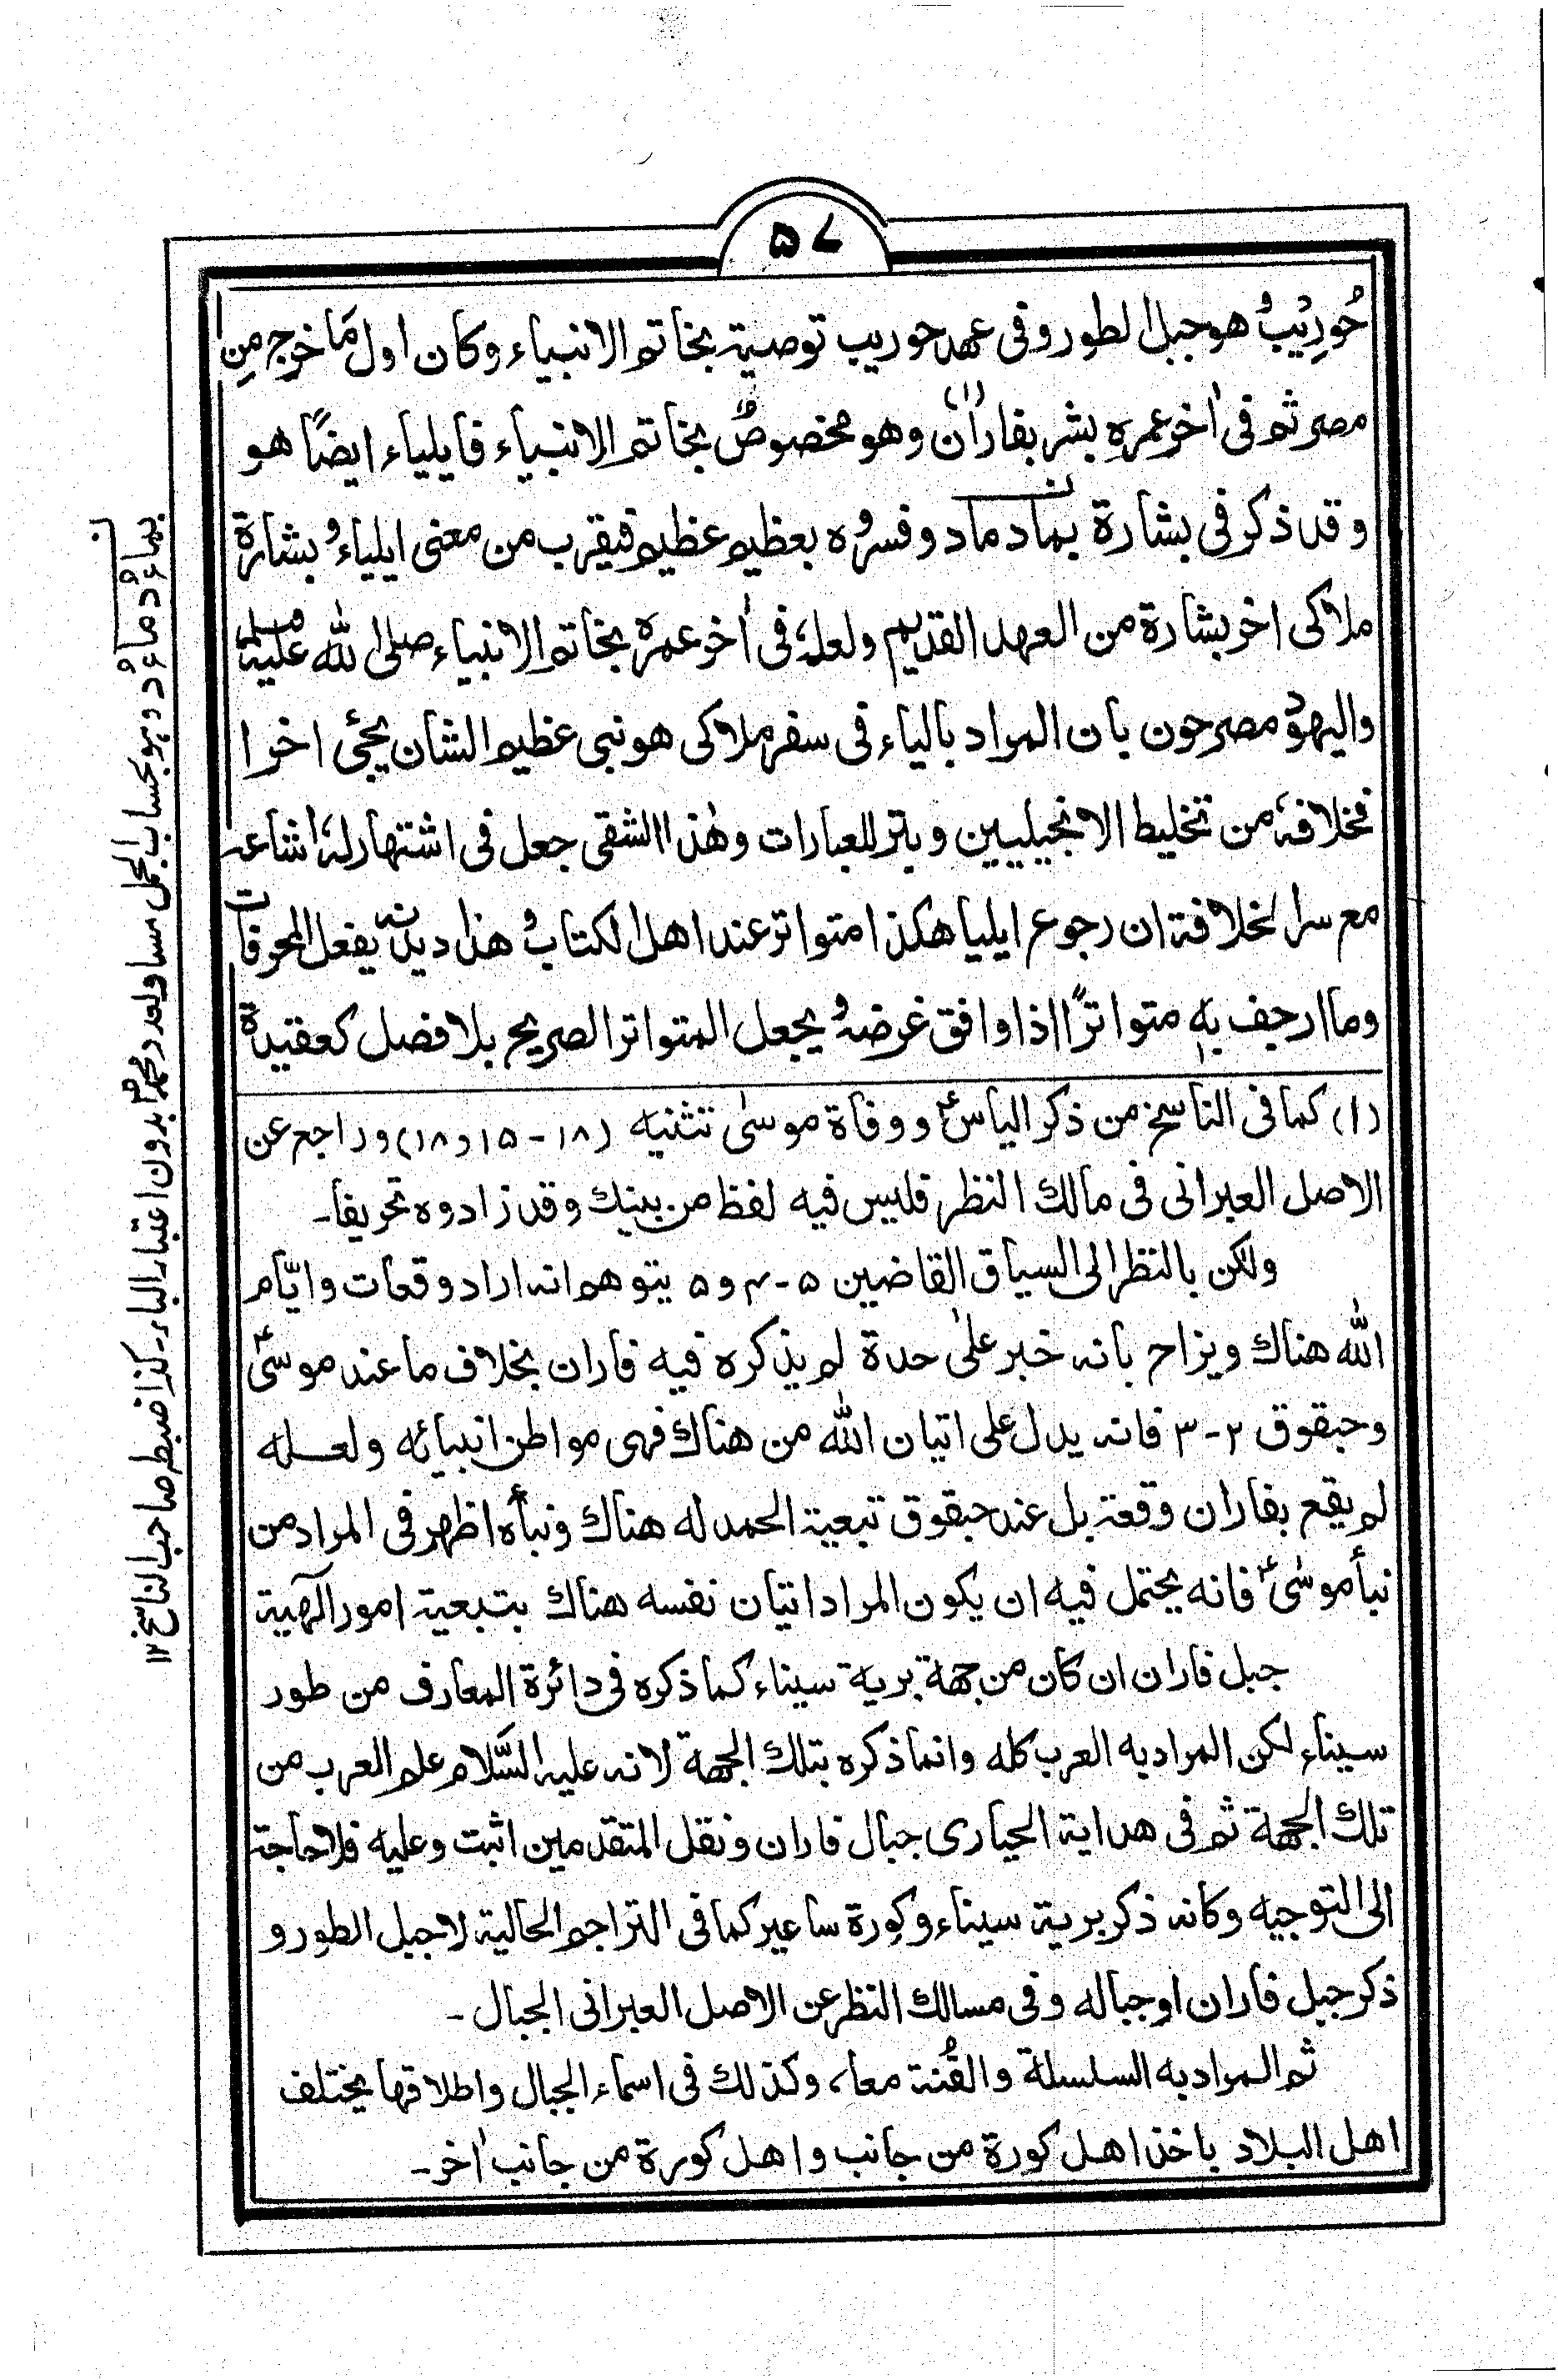 ۵۷
حُورِيبُ هو جبل الطور و فى عهد حوريب توصية بخاتم الانبياء و كان اول مَا خرج مِن
مصر ثم فى اٰخر عمره بشر بفاران (۱) وهو مخصوصٌ بخاتم الانبياء فايلياء ايضًا هو
و قد ذكر فى بشارة بماد ماد و فسرُوه بعظيم عظيم فيقرب من معنى ايلياءُ و بشارة
ملاكى اخر بشارة من العهد القديم ولعلهٗ فى اٰخر عمره بخاتم الانبياء صلى الله عليه وسلم
واليهود مصرحون بان المراد بالياء فى سفر ملاكى هو نبى عظيم الشان يجئ اخرا
فخلافهٗ من تخليط الانجيليين و بتر للعبارات وهٰذا الشقى جعل فى اشتهار لهٗ اشاعه
مع سرا لخلافة ان رجوع ايليا هكذا متواتر عند اهل الكتاب و هذا ديدنه يفعل المحرفات
وما ارجف به متواترًا اذا وافق غرضهٗ و يجعل المتواتر الصريح بلا فصل كعقيدة
(۱) كما فى الناسخ من ذكر الياسؑ و وفاة موسٰى تثنيه (۱۸-۱۵ و ۱۸) و راجع عن
الاصل العبرانى فى مالك النظر فليس فيه لفظ من بينك و قد زادوه تحريفا۔
ولكن بالنظر الى السياق القاضين ۵-۴ و ۵ يتوهم انه اراد وقعات و ايّام
الله هناك و يزاح بانه خبر علٰى حدة لم يذكره فيه فاران بخلاف ما عند موسٰىؑ
و حبقوق ۲-۳ فانه يدل على اتيان الله من هناك فهى مواطن انبيائه ولعله
لم يقع بفاران وقعة بل عند حبقوق تبعية الحمد له هناك و نبأه اظهر فى المراد من
نبأ موسٰىؑ فانه يحتمل فيه ان يكون المراد اتيان نفسه هناك بتبعية امور الٰهية
جبل فاران ان كان من جهة برية سيناء كما ذكره فى دائرة المعارف من طور
سيناء لكن المراد به العرب كله و انما ذكره بتلك الجهة لانه عليه السَّلام علم العرب من
تلك الجهة ثم فى هداية الحيارى جبال فاران و نقل المتقدمين اثبت و عليه فلا حاجة
الى التوجيه و كانه ذكر برية سيناء و كورة ساعير كما فى التراجم الحالية لا جبل الطور و
ذكر جبل فاران او جباله و فى مسالك النظر عن الاصل العبرانى الجبال۔
ثم المراد به السلسلة والقُنة معا، وكذلك فى اسماء الجبال و اطلاقها يختلف
اهل البلاد ياخذ اهل كورة من جانب و اهل كورة من جانب اٰخر۔
بماءُ دماءُ د و هو بحساب الجمل مساو لعدد محمدؐ بدون اعتبار الباء۔ كذا ضبط صاحب الناسخ ۱۲